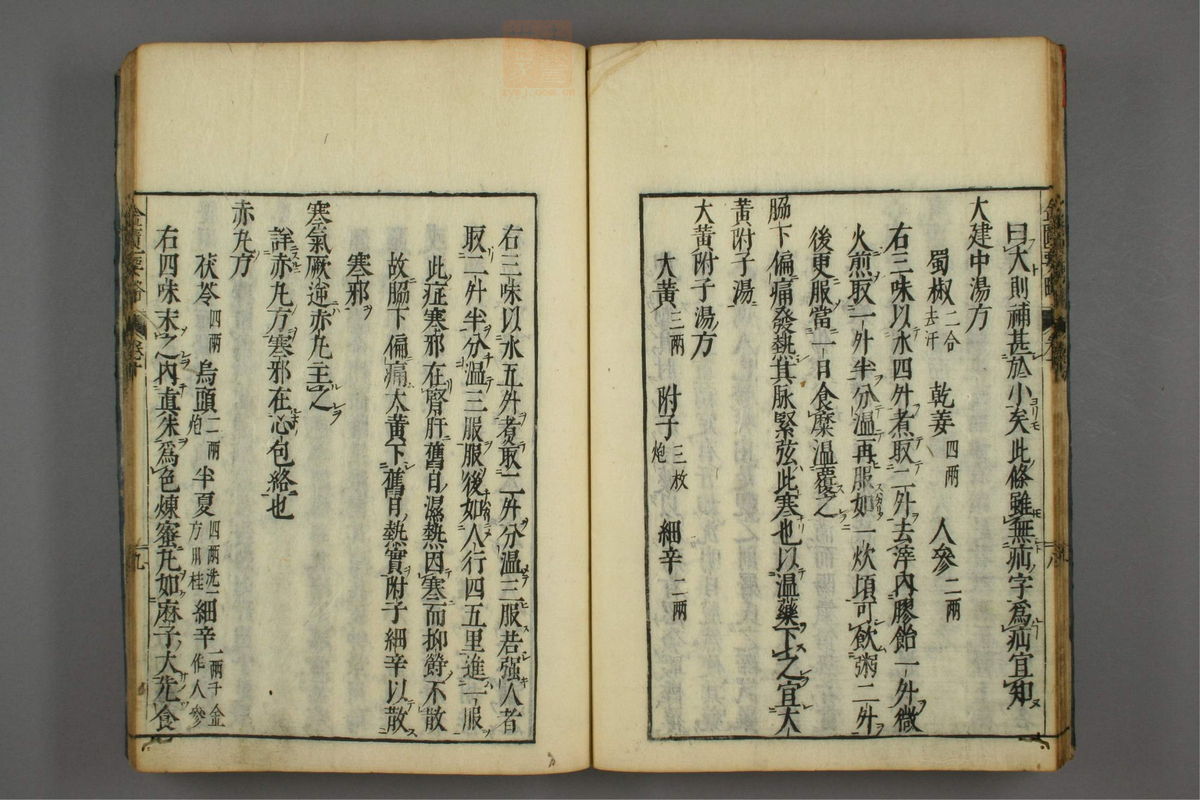 曰大則補甚於小矣此條雖無疝字為疝宜知
大建中湯方
蜀椒二合去汗 乾姜四兩 人參二兩
右三味以水四升煮取二升去滓內膠飴一升微
火煎取一升半分溫再服如一炊頃可飲粥二升
後更服當一日食糜溫覆之
脇下偏痛發熱其脉緊弦此寒也以溫藥下之宜大
黃附子湯
大黃附子湯方
大黃三兩 附子三枚炮 細辛二兩
右三味以水五升煮取二升分溫三服若强人者
取二升半分溫三服服後如人行四五里進一服
此症寒邪在腎肝舊有濕熱因寒而抑欝不散
故脇下偏痛大黃下舊有熱實附子細辛以散
寒邪
寒氣厥逆赤丸主之
詳赤丸方寒邪在心包絡也
赤丸方
茯苓四兩 烏頭二兩炮 半夏四兩洗一方用桂 細辛一兩千金作人參
右四味末之內眞朱為色煉蜜丸如麻子大先食
金匱要略 九